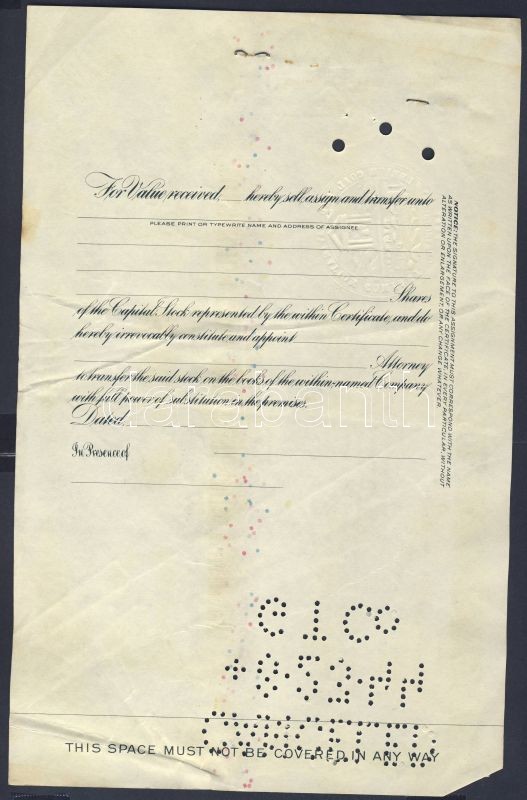 For Value received, hereby sell, assign and transfer unto
PLEASE PRINT OR TYPEWRITE NAME AND ADDRESS OF ASSIGNEE
Shares
of the Capital Stock represented by the within Certificate, and do
hereby irrevocably constitute and appoint
Attorney
to transfer the said stock on the books of the within-named Company
with full power of substitution in the premises.
Dated,
In Presence of
NOTICE: THE SIGNATURE TO THIS ASSIGNMENT MUST CORRESPOND WITH THE NAME
AS WRITTEN UPON THE FACE OF THE CERTIFICATE, IN EVERY PARTICULAR, WITHOUT
ALTERATION OR ENLARGEMENT, OR ANY CHANGE WHATEVER.
darabanth
THIS SPACE MUST NOT BE COVERED IN ANY WAY